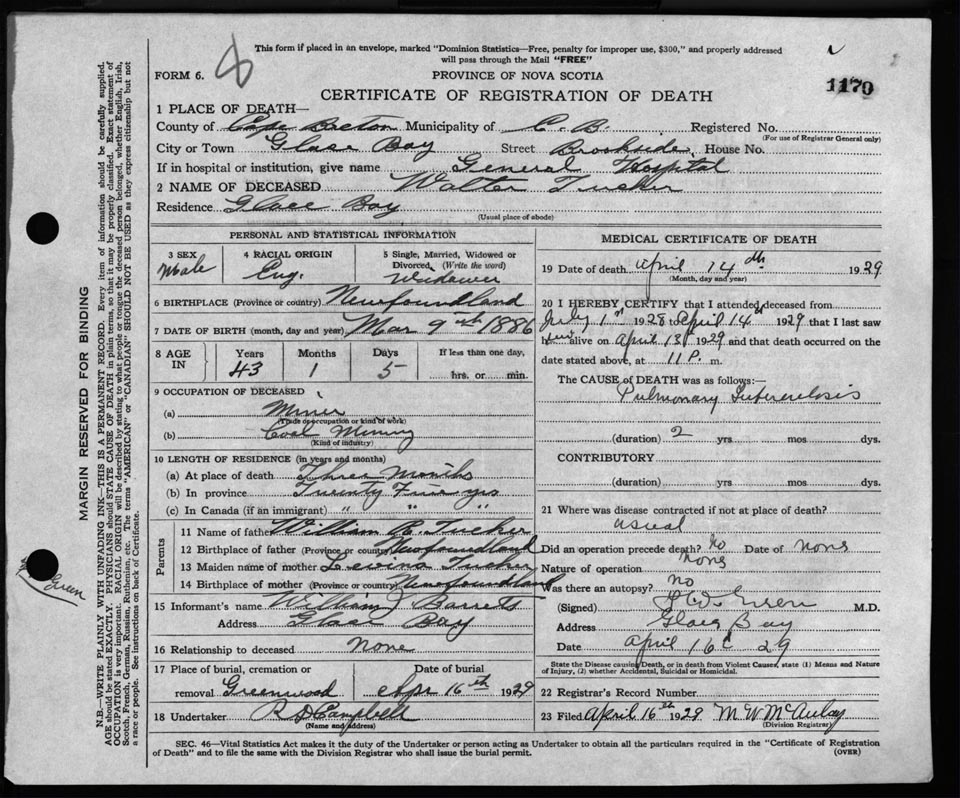 This form if placed in an envelope, marked "Dominion Statistics—Free, penalty for improper use, $300," and properly addressed
will pass through the Mail "FREE"
FORM 6.
PROVINCE OF NOVA SCOTIA
1170
CERTIFICATE OF REGISTRATION OF DEATH
1 PLACE OF DEATH—
County of Cape Breton Municipality of C. B. Registered No.
(For use of Registrar General only)
City or Town Glace Bay Street Brookside House No.
If in hospital or institution, give name General Hospital
2 NAME OF DECEASED Walter Tucker
Residence Glace Bay
(Usual place of abode)
PERSONAL AND STATISTICAL INFORMATION
3 SEX Male
4 RACIAL ORIGIN Eng.
5 Single, Married, Widowed or
Divorced, (Write the word)
Widower
6 BIRTHPLACE (Province or country) Newfoundland
7 DATE OF BIRTH (month, day and year) Mar 9th 1886
8 AGE IN Years 43 Months 1 Days 5 If less than one day, hrs. or min.
9 OCCUPATION OF DECEASED
(a) Miner
(Trade or occupation or kind of work)
(b) Coal Mining
(Kind of industry)
10 LENGTH OF RESIDENCE (in years and months)
(a) At place of death Three Months
(b) In province Twenty Five yrs
(c) In Canada (if an immigrant) " " "
Parents
11 Name of father William R. Tucker
12 Birthplace of father (Province or country) Newfoundland
13 Maiden name of mother Tucker
14 Birthplace of mother (Province or country) Newfoundland
15 Informant's name William J Barrett
Address Glace Bay
16 Relationship to deceased None
17 Place of burial, cremation or
removal Greenwood
Date of burial
Apr 16th 1929
18 Undertaker R D Campbell
(Name and address)
MEDICAL CERTIFICATE OF DEATH
19 Date of death April 14th 1929
(Month, day and year)
20 I HEREBY CERTIFY that I attended deceased from
July 1st 1928 to April 14th 1929 that I last saw
him alive on April 13th 1929 and that death occurred on the
date stated above, at 11 P. m.
The CAUSE of DEATH was as follows:—
Pulmonary Tuberculosis
(duration) 2 yrs mos dys.
CONTRIBUTORY
(duration) yrs mos dys.
21 Where was disease contracted if not at place of death?
usual
Did an operation precede death? no Date of none
Nature of operation none
Was there an autopsy? no
(Signed) M.D.
Address Glace Bay
Date April 16 29
State the Disease causing Death, or in death from Violent Causes, state (1) Means and Nature
of Injury, (2) whether Accidental, Suicidal or Homicidal.
22 Registrar's Record Number
23 Filed April 16th 1929 M W McAulay
(Division Registrar)
SEC. 46—Vital Statistics Act makes it the duty of the Undertaker or person acting as Undertaker to obtain all the particulars required in the "Certificate of Registration
of Death" and to file the same with the Division Registrar who shall issue the burial permit.
(OVER)
MARGIN RESERVED FOR BINDING
N.B.—WRITE PLAINLY WITH UNFADING INK—THIS IS A PERMANENT RECORD. Every item of information should be carefully supplied.
AGE should be stated EXACTLY. PHYSICIANS should STATE CAUSE OF DEATH in plain terms, so that it may be properly classified. Exact statement of
OCCUPATION is very important. RACIAL ORIGIN will be described by stating to what people or tongue the deceased person belonged, whether English, Irish,
Scotch, French, German, Russian, Ruthenian, etc. The terms "AMERICAN" or "CANADIAN" SHOULD NOT BE USED as they express citizenship but not
a race or people. See instructions on back of Certificate.